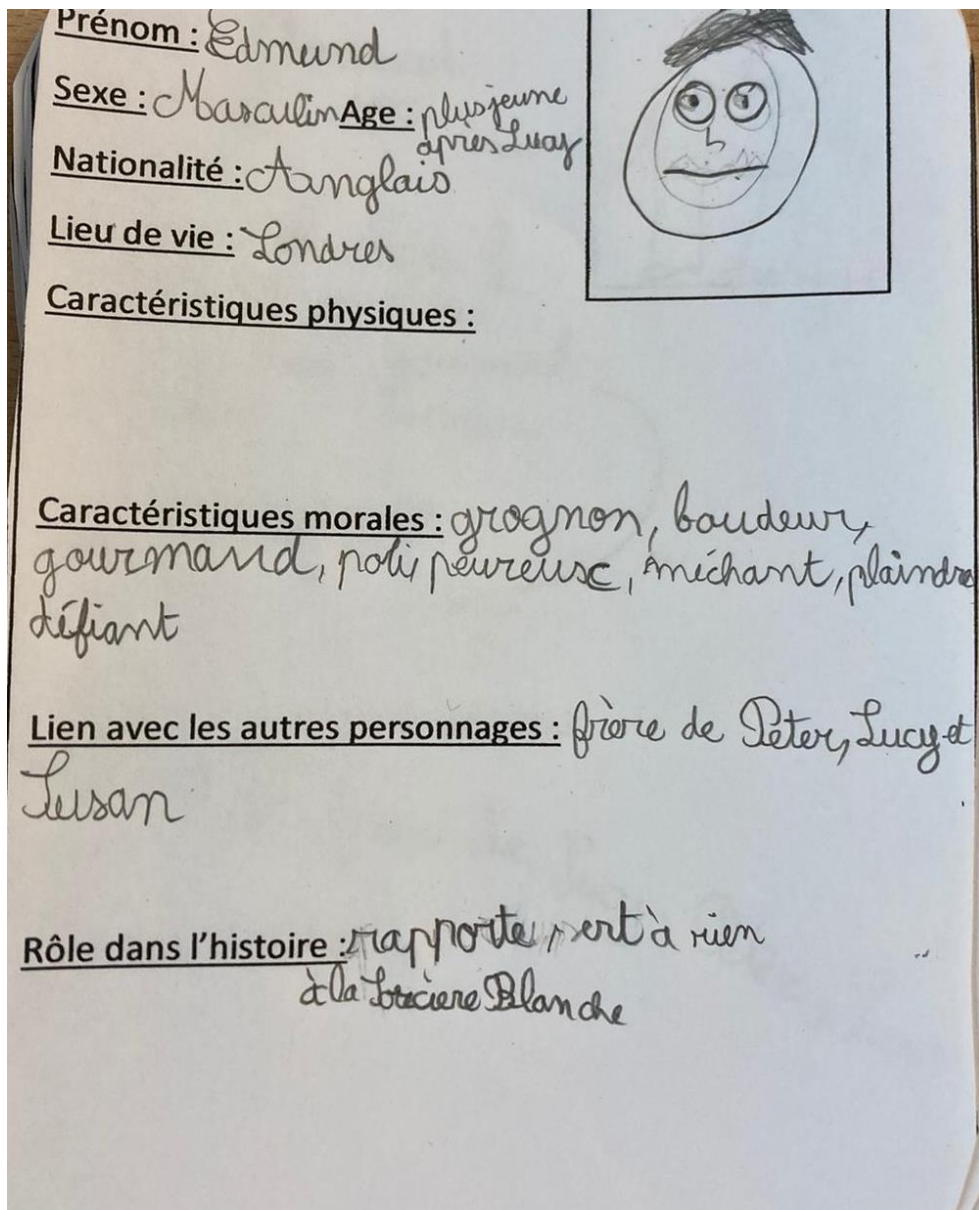 Prénom : Edmund
Sexe : Masculin Age : plus jeune
après Lucy
Nationalité : Aanglais
Lieu de vie : Londres
Caractéristiques physiques :
Caractéristiques morales : grognon, boudeur,
gourmand, poli peureuse, méchant, plaindre
défiant
Lien avec les autres personnages : frère de Peter, Lucy et
Susan
Rôle dans l'histoire : rapporte, sert à rien
à la Sorciere Blanche